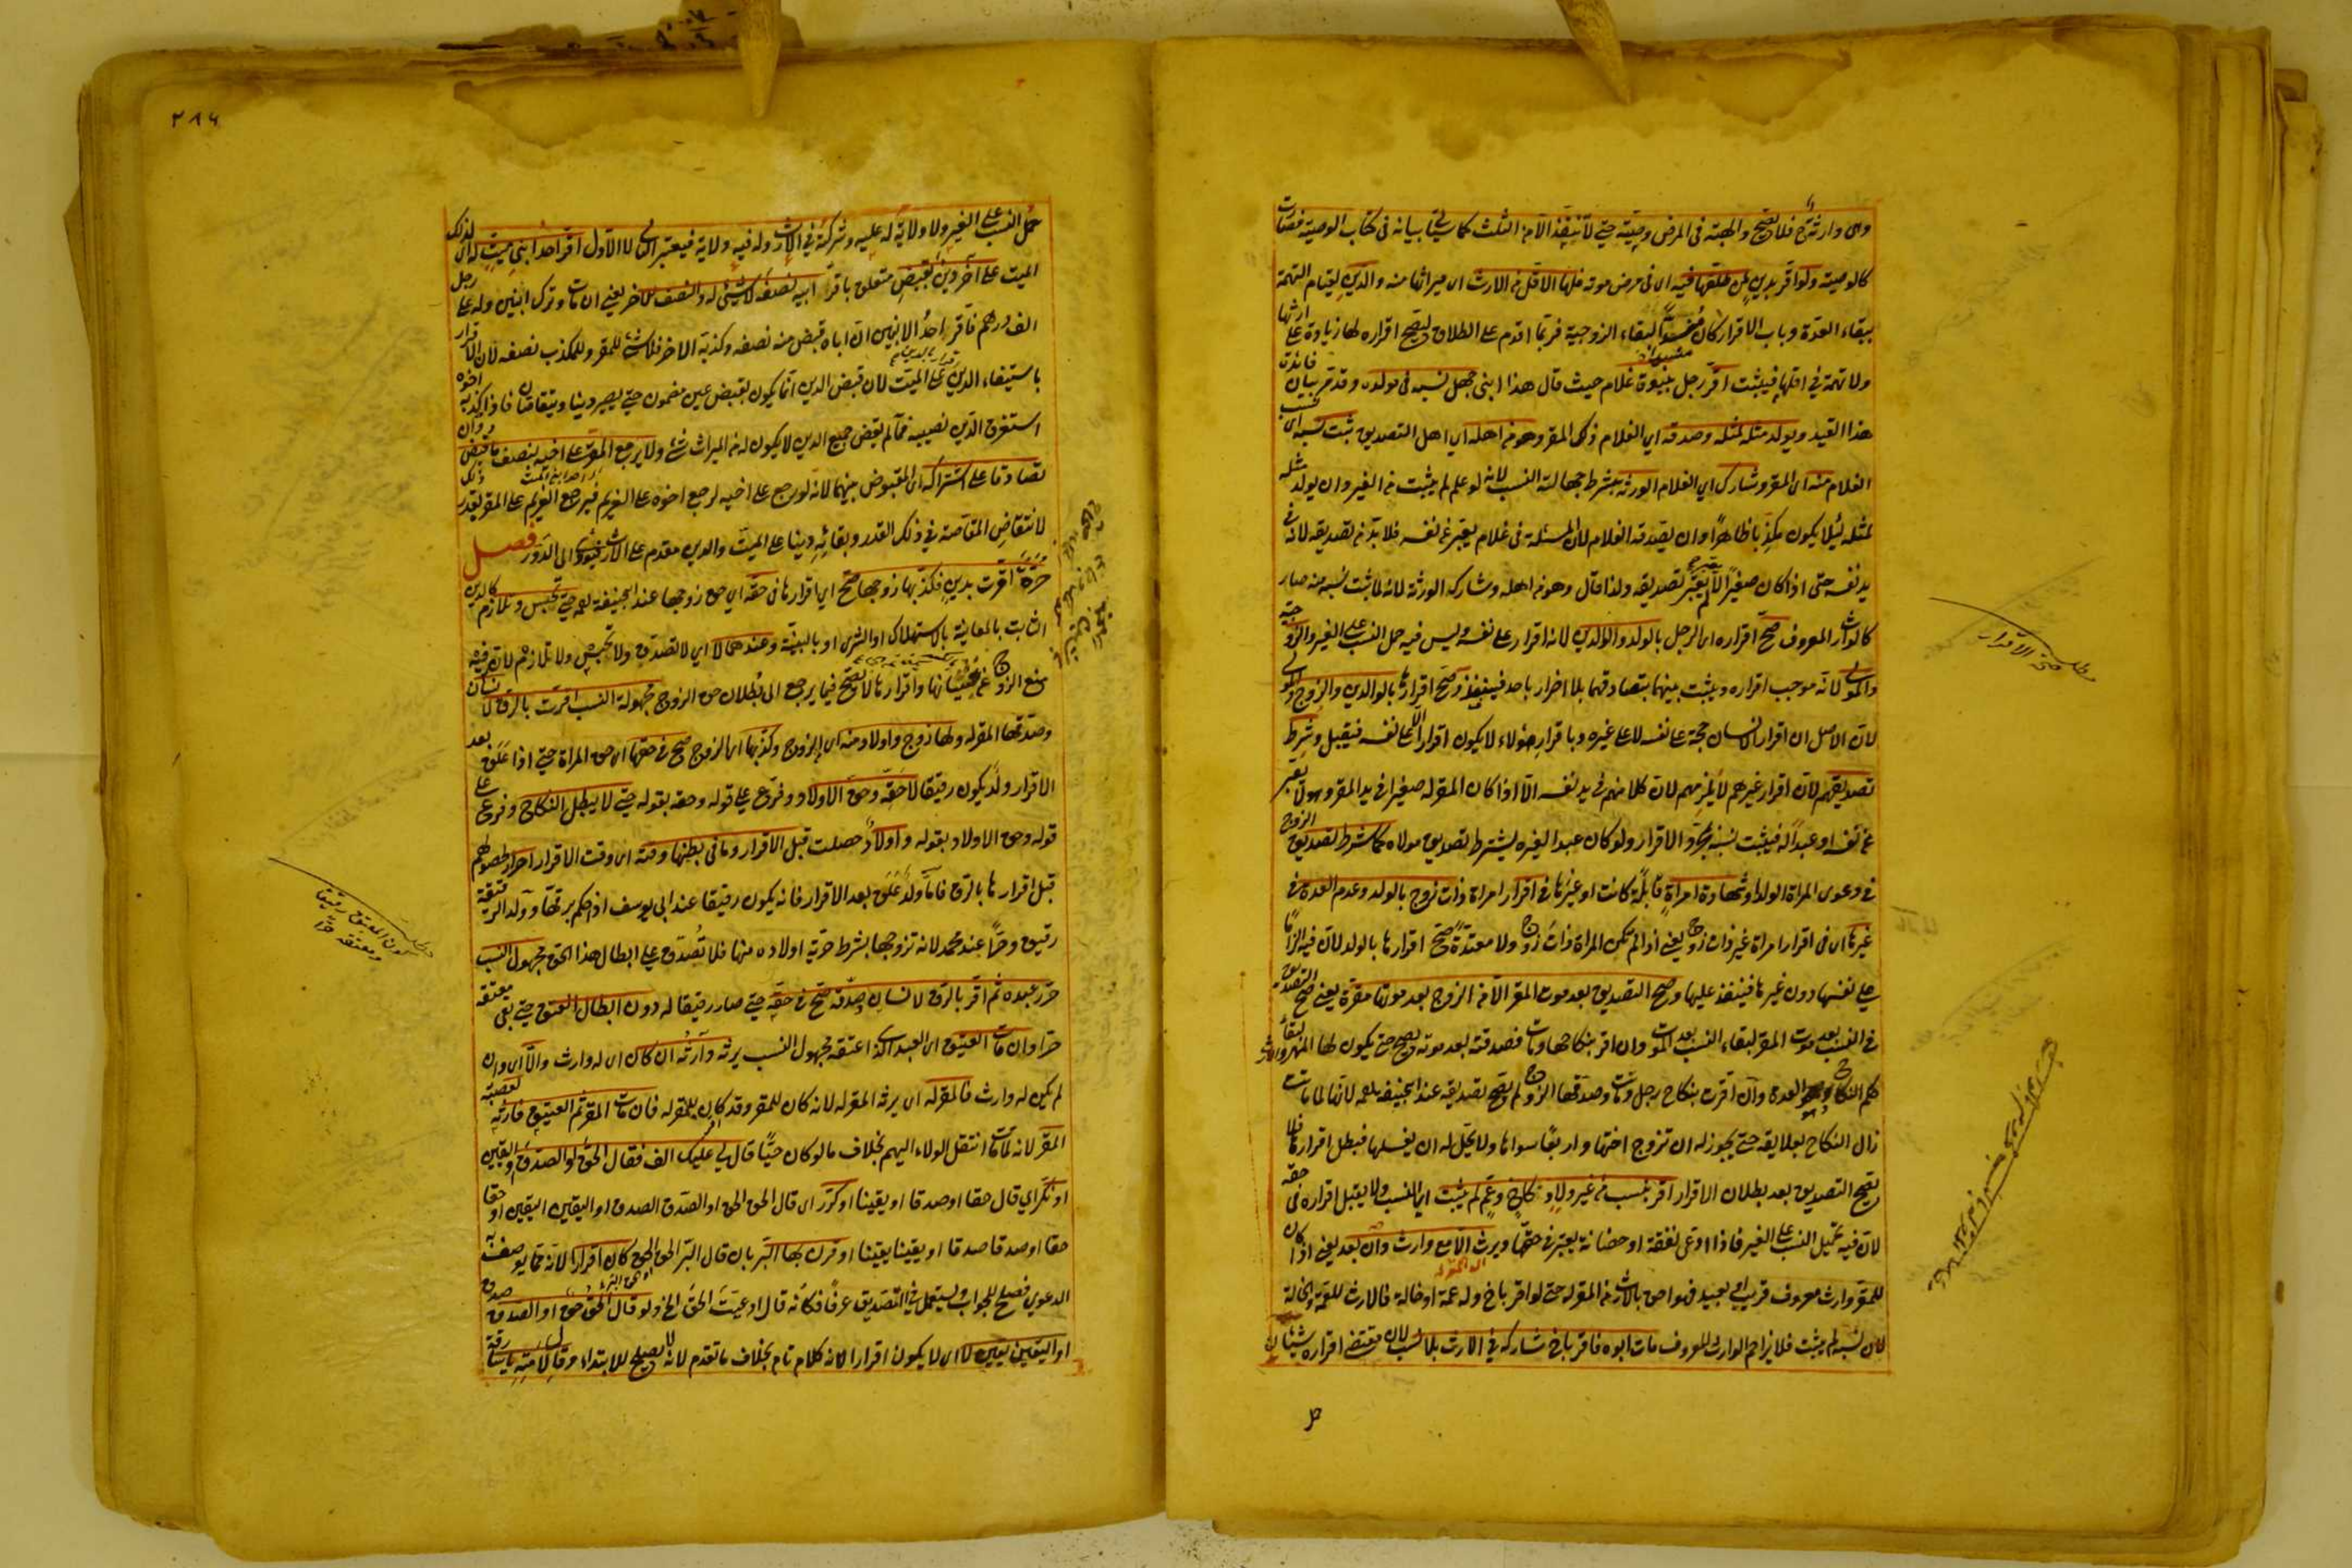 كالوصية ولو اقر بدين لمن طلقها فيه اى فى مرض موته فلها الاقل من الارث اى ميراثها منه والدين لقيام التهمة
ببقاء العدة وباب الاقرار كان منسدا لبقاء الزوجية فربما اقدم على الطلاق ليصح اقراره لها زيادة على ارثها
ولا تهمة فى اقلهما فيثبت اقر رجل ببنوة غلام حيث قال هذا ابنى جهل نسبه فى مولده وقد مر بيان فائدة
هذا القيد ويولد مثله لمثله وصدقه اى الغلام ذلك المقر وهو من اهله اى اهل التصديق ثبت نسبه اى نسب
الغلام منه اى المقر وشارك اى الغلام الورثة بشرط جهالة النسب لانه لو علم لم يثبت من الغير وان يولد مثله
لمثله لئلا يكون مكذبا ظاهرا وان يصدقه الغلام لان المسئلة فى غلام يعبر عن نفسه فلا بد من تصديقه لانه فى
يد نفسه حتى اذا كان صغيرا لا يعبر لم يعتبر تصديقه ولذا قال وهو من اهله وشاركه الورثة لانه لما ثبت نسبه منه صار
كالوارث المعروف صح اقراره اى الرجل بالولد والوالدين لانه اقرار على نفسه وليس فيه حمل النسب على الغير والزوجة
والمولى لانه موجب اقراره ويثبت بينهما بتصادقهما بلا اضرار باحد فينفذ وصح اقرارها بالوالدين والزوج والمولى
لان الاصل ان اقرار الانسان حجة على نفسه لا على غيره وباقرار هؤلاء لا يكون اقرارا الا على نفسه فيقبل وشرط
تصديقهم لان اقرار غيرهم لا يلزمهم لان كلا منهم فى يد نفسه الا اذا كان المقر له صغيرا فى يد المقر وهو لا يعبر
عن نفسه او عبدا له فيثبت نسبه بمجرد الاقرار ولو كان عبدا لغيره يشترط تصديق مولاه كما شرط تصديق الزوج
فى دعوى المراة الولد او شهادة امراة قابلة كانت او غيرها فى اقرار امراة ذات زوج بالولد وعدم العدة فى
غيرها اى فى اقرار امراة غير ذات زوج يعنى اذا لم تكن المراة ذات زوج ولا معتدة صح اقرارها بالولد لان فيه الزاما
على نفسها دون غيرها فينفذ عليها وصح التصديق بعد موت المقر الا من الزوج بعد موتها مقرة يعنى صح التصديق
فى النسب بعد موت المقر لبقاء النسب بعد الموت وان اقر بنكاحها ومات فصدقته بعد موته يصح حتى يكون لها المهر والارث لبقاء
حكم النكاح وهو العدة وان اقرت بنكاح رجل وماتت وصدقها الزوج لم يصح تصديقه عند ابى حنيفة رحمه لانها لما ماتت
زال النكاح بعلايقه حتى يجوز له ان تزوج اختها واربعا سواها ولا يحل له ان يغسلها فبطل اقرارها فلا
يصح التصديق بعد بطلان الاقرار اقر بنسب من غير ولاد كاخ وعم لم يثبت اى النسب ولا يقبل اقراره فى حقه
لان فيه تحميل النسب على الغير فاذا ادعى نفقة او حضانة يعتبر فى حقهما ويرث الا مع وارث وان بعد يعنى اذا كان
للمقر وارث معروف قريب او بعيد فهو احق بالارث من المقر له حتى لو اقر باخ وله عمة او خالة فالارث للعمة والخالة
لان نسبه لم يثبت فلا يزاحم الوارث المعروف مات ابوه فاقر باخ شاركه فى الارث بلا نسب لان مقتضى اقراره شيئان
مطلب صحة الاقرار
٢٨٦
حمل النسب على الغير ولا ولاية له عليه وشركته فى الارث وله فيه ولاية فيعتبر الثانى لا الاول اقر احد ابنى ميت له اى لذلك
الميت على آخر دين بقبض متعلق باقر ابيه نصفه لا شيئ له والنصف للاخر يعنى ان مات وترك ابنين وله على رجل
الف درهم فاقر احد الابنين ان اباه قبض منه نصفه وكذبه الاخر فلا شئ للمقر وللمكذب نصفه لان الاقرار
باستيفاء الدين اقرار بالدين على الميت لان قبض الدين انما يكون بقبض عين مضمون حتى يصير دينا ويتقاصان فاذا كذبه اخوه
استغرق الدين نصيبه فما لم يقبض جميع الدين لا يكون له من الميراث شئ ولا يرجع المقر على اخيه بنصف ما قبض وان
تصادقا على اشتراك المقبوض بينهما لانه لو رجع على اخيه لرجع اخوه على الغريم فيرجع الغريم على المقر بقدر ذلك
لانتقاض المقاصة فى ذلك القدر وبقائه دينا على الميت والدين مقدم على الارث فيؤدى الى الدور فصل
حرة اقرت بدين فكذبها زوجها صح اى اقرارها فى حقه اى حق زوجها عند ابى حنيفة رحمه حتى تحبس وتلازم كالدين
الثابت بالمعاينة بالاستهلاك او الشرى او بالبينة وعندهما لا اى لا تصدق ولا تحبس ولا تلازم لان فيه
منع الزوج عن غشيانها واقرارها لا يصح فيما يرجع الى بطلان حق الزوج مجهولة النسب اقرت بالرق لانسان
وصدقها المقر له ولها زوج واولاد منه اى الزوج وكذبها اى الزوج صح فى حقها اى حق المراة حتى اذا علق بعد
الاقرار ولد يكون رقيقا لا حقه وحق الاولاد وفرع على قوله وحقه بقوله حتى لا يبطل النكاح وفرع على
قوله وحق الاولاد بقوله واولاد حصلت قبل الاقرار وما فى بطنها وقته اى وقت الاقرار احرار لحصولهم
قبل اقرارها بالرق فاما ولد علق بعد الاقرار فانه يكون رقيقا عند ابى يوسف اذ حكم برقها وولد الرقيقة
رقيق وحرا عند محمد لانه تزوجها بشرط حرية اولاده منها فلا تصدق على ابطال هذا الحق مجهول النسب
حرر عبده ثم اقر بالرق لانسان صدقه صح فى حقه حتى صار رقيقا له دون ابطال العتق حتى بقى معتقه
حرا وان مات العتيق اى العبد الذى اعتقه مجهول النسب يرثه وارثه ان كان اى له وارث والا اى وان
لم يكن له وارث فالمقر له اى يرثه المقر له لانه كان للمقر وقد كان للمقر له فان مات المقر ثم العتيق فارثه لعصبة
المقر لانه لما مات انتقل الولاء اليهم بخلاف ما لو كان حيا قال لى عليك الف فقال الحق او الصدق او اليقين
او نكر اى قال حقا او صدقا او يقينا او كرر اى قال الحق الحق او الصدق الصدق او اليقين اليقين او حقا
حقا او صدقا صدقا او يقينا يقينا او قرن بها البر بان قال البر الحق الخ كان اقرارا لانه مما يوصف به
الدعوى فصلح للجواب ويستعمل فى التصديق عرفا فكانه قال ادعيت الحق الخ ولو قال الحق حق او الصدق صدق
او اليقين يقين لا اى لا يكون اقرارا لانه كلام تام بخلاف ما تقدم لانه لا يصلح للابتداء وقال لامته يا سارقة
مطلب كون المعتق رقيقا ومعتقه حرا